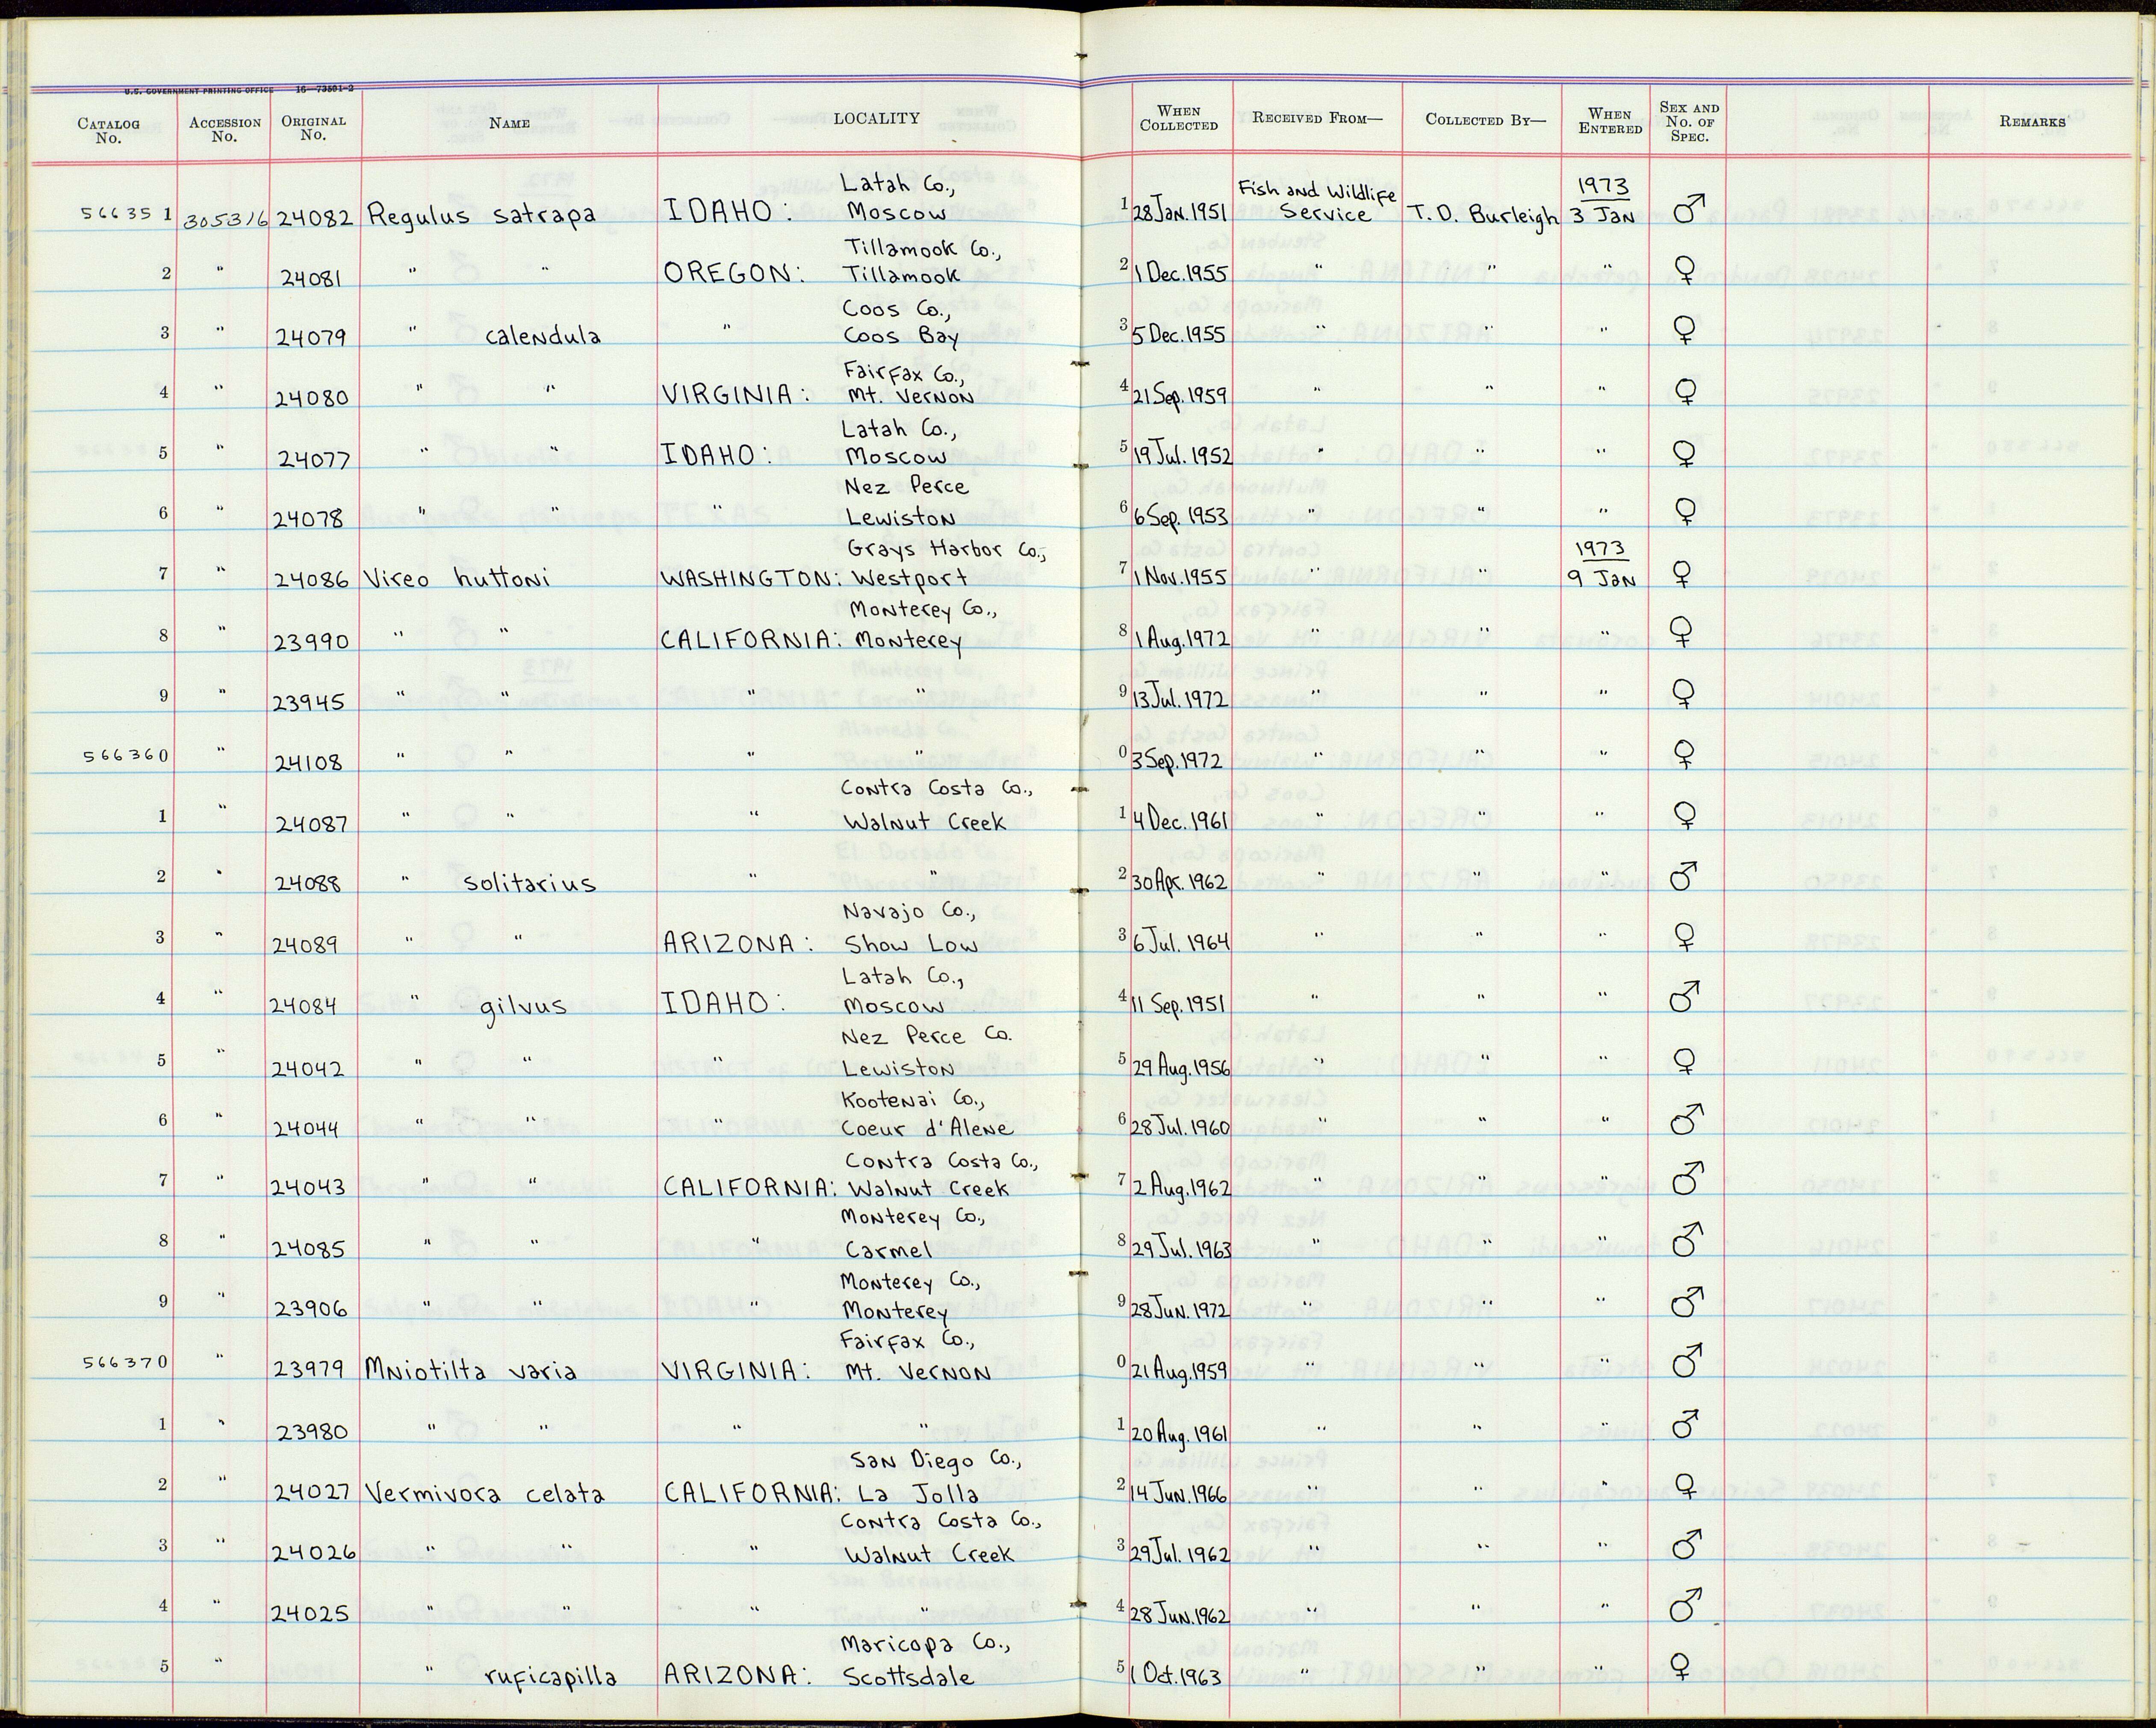 U.S. GOVERNMENT PRINTING OFFICE 16—73501-2
CATALOG No. ACCESSION No. ORIGINAL No. NAME LOCALITY WHEN COLLECTED RECEIVED FROM— COLLECTED BY— WHEN ENTERED SEX AND No. OF SPEC. REMARKS
Latah Co., Fish and Wildlife 1973
566351 305316 24082 Regulus satrapa IDAHO: Moscow 1 28 Jan. 1951 Service T. D. Burleigh 3 Jan ♂
Tillamook Co.,
2 " 24081 " " OREGON: Tillamook 2 1 Dec. 1955 " " " ♀
Coos Co.,
3 " 24079 " calendula " Coos Bay 3 5 Dec. 1955 " " " ♀
Fairfax Co.,
4 " 24080 " " VIRGINIA: Mt. Vernon 4 21 Sep. 1959 " " " ♀
Latah Co.,
5 " 24077 " " IDAHO: Moscow 5 19 Jul. 1952 " " " ♀
Nez Perce
6 " 24078 " " " Lewiston 6 6 Sep. 1953 " " " ♀
Grays Harbor Co., 1973
7 " 24086 Vireo huttoni WASHINGTON: Westport 7 1 Nov. 1955 " " 9 Jan ♀
Monterey Co.,
8 " 23990 " " CALIFORNIA: Monterey 8 1 Aug. 1972 " " " ♀
9 " 23945 " " " " 9 13 Jul. 1972 " " " ♀
566360 " 24108 " " " " 0 3 Sep. 1972 " " " ♀
Contra Costa Co.,
1 " 24087 " " " Walnut Creek 1 4 Dec. 1961 " " " ♀
2 " 24088 " solitarius " " 2 30 Apr. 1962 " " " ♂
Navajo Co.,
3 " 24089 " " ARIZONA: Show Low 3 6 Jul. 1964 " " " ♀
Latah Co.,
4 " 24084 " gilvus IDAHO: Moscow 4 11 Sep. 1951 " " " ♂
Nez Perce Co.
5 " 24042 " " " Lewiston 5 29 Aug. 1956 " " " ♀
Kootenai Co.,
6 " 24044 " " " Coeur d'Alene 6 28 Jul. 1960 " " " ♂
Contra Costa Co.,
7 " 24043 " " CALIFORNIA: Walnut Creek 7 2 Aug. 1962 " " " ♂
Monterey Co.,
8 " 24085 " " " Carmel 8 29 Jul. 1963 " " " ♂
Monterey Co.,
9 " 23906 " " " Monterey 9 28 Jun. 1972 " " " ♂
Fairfax Co.,
566370 " 23979 Mniotilta varia VIRGINIA: Mt. Vernon 0 21 Aug. 1959 " " " ♂
1 " 23980 " " " " 1 20 Aug. 1961 " " " ♂
San Diego Co.,
2 " 24027 Vermivora celata CALIFORNIA: La Jolla 2 14 Jun. 1966 " " " ♀
Contra Costa Co.,
3 " 24026 " " " Walnut Creek 3 29 Jul. 1962 " " " ♂
4 " 24025 " " " " 4 28 Jun. 1962 " " " ♂
Maricopa Co.,
5 " " ruficapilla ARIZONA: Scottsdale 5 1 Oct. 1963 " " " ♀